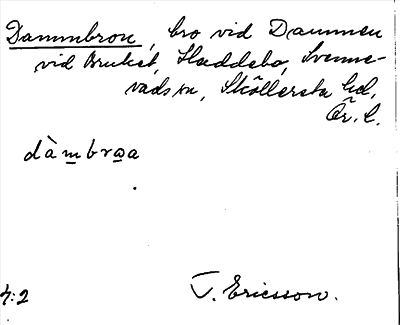 Dammbron, bro vid Dammen
vid Bruket, Haddebo, Svenne-
vads sn, Sköllersta hd,
Ör. l.
dàmbrωa
4:2
T. Ericsson.